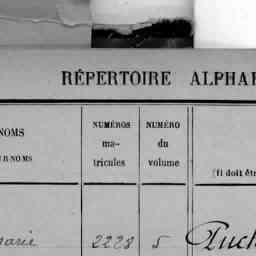 RÉPERTOIRE ALPHA
NOMS
NUMÉROS
ma-
tricules
NUMÉRO
du
volume
(Il doit êtr
2228 5